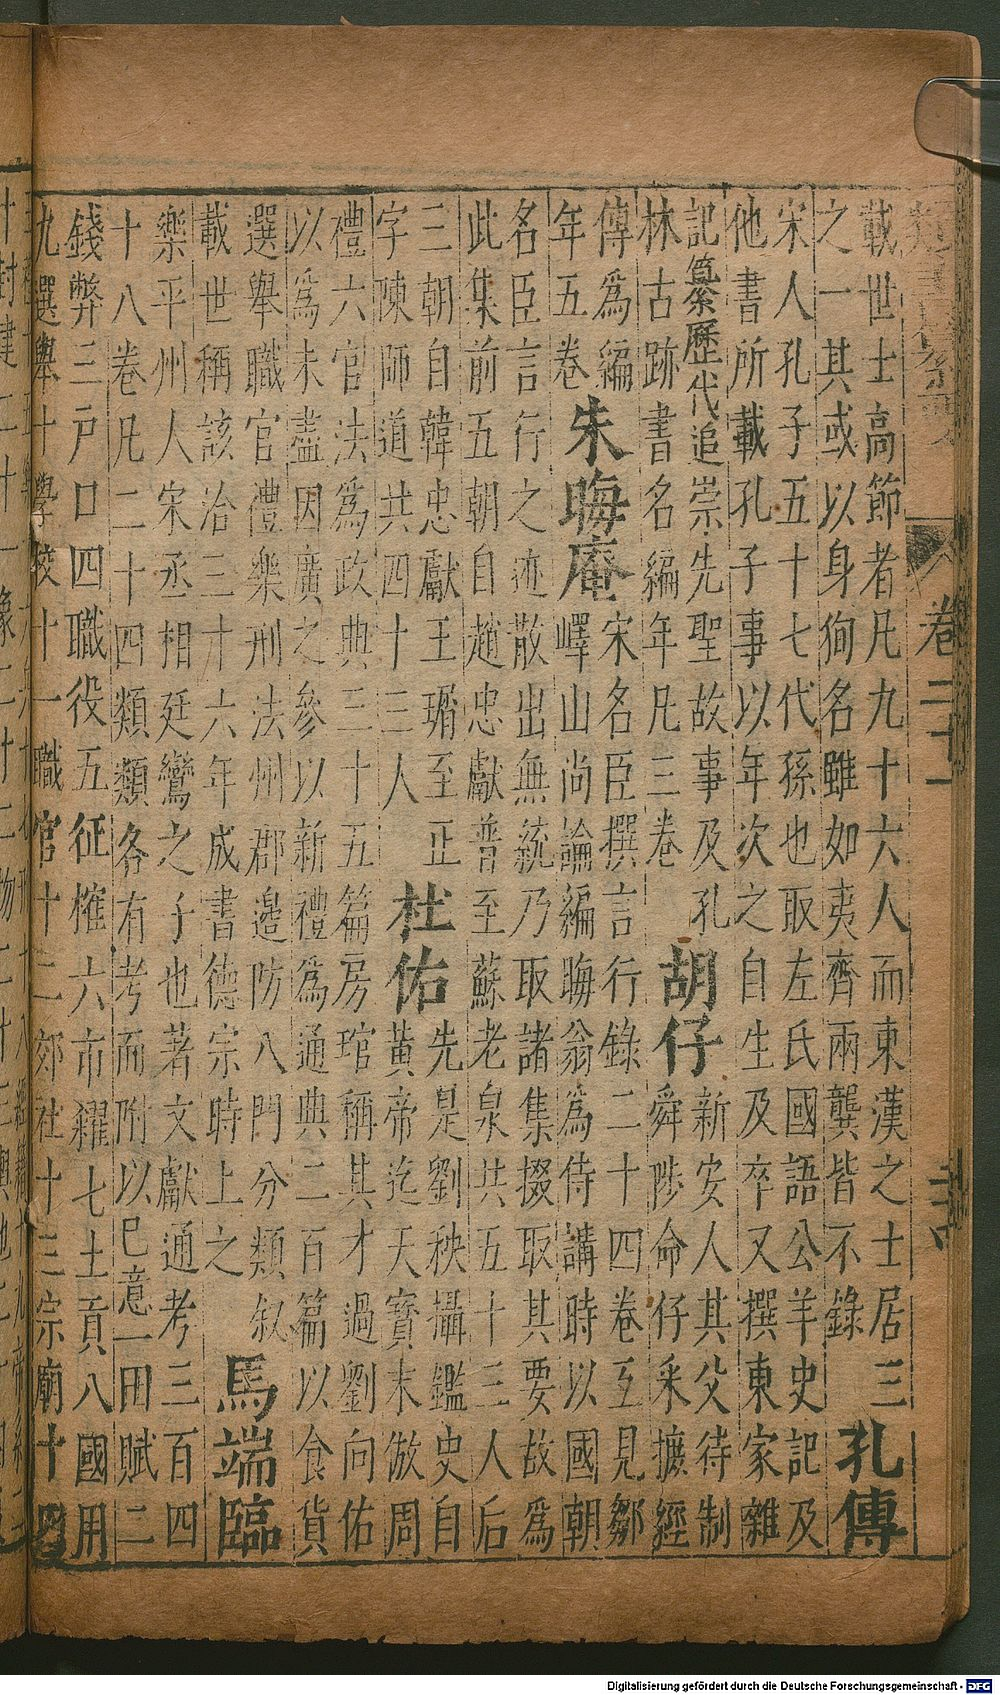 卷二十一
載世士高節者凡九十六人而東漢之士居三
之一其或以身狥名雖如夷齊兩龔皆不錄
孔傳
宋人孔子五十七代孫也取左氏國語公羊史記及
他書所載孔子事以年次之自生及卒又撰東家雜
記纂歷代追崇先聖故事及孔
林古跡書名編年凡三卷
胡仔
新安人其父待制
舜陟命仔釆摭經
傳為編
年五卷
朱晦庵
宋名臣撰言行錄二十四卷互見鄒
嶧山尚論編晦翁為侍講時以國朝
名臣言行之迹散出無統乃取諸集掇取其要故為
此集前五朝自趙忠獻普至蘇老泉共五十三人后
三朝自韓忠獻王琚至正
字陳師道共四十三人
杜佑
先是劉秩攝鑑史自
黃帝迄天寶末倣周
禮六官法為政典三十五篇房琯稱其才過劉向佑
以為未盡因廣之參以新禮為通典二百篇以食貨
選舉職官禮樂刑法州郡邊防八門分類叙
載世稱該洽三十六年成書德宗時上之
馬端臨
樂平州人宋丞相廷鸞之子也著文獻通考三百四
十八卷凡二十四類類各有考而附以已意一田賦二
錢弊三戶口四職役五征榷六市糴七土貢八國用
九選舉十學校十一職官十二郊社十三宗廟十四
Digitalisierung gefördert durch die Deutsche Forschungsgemeinschaft - DFG